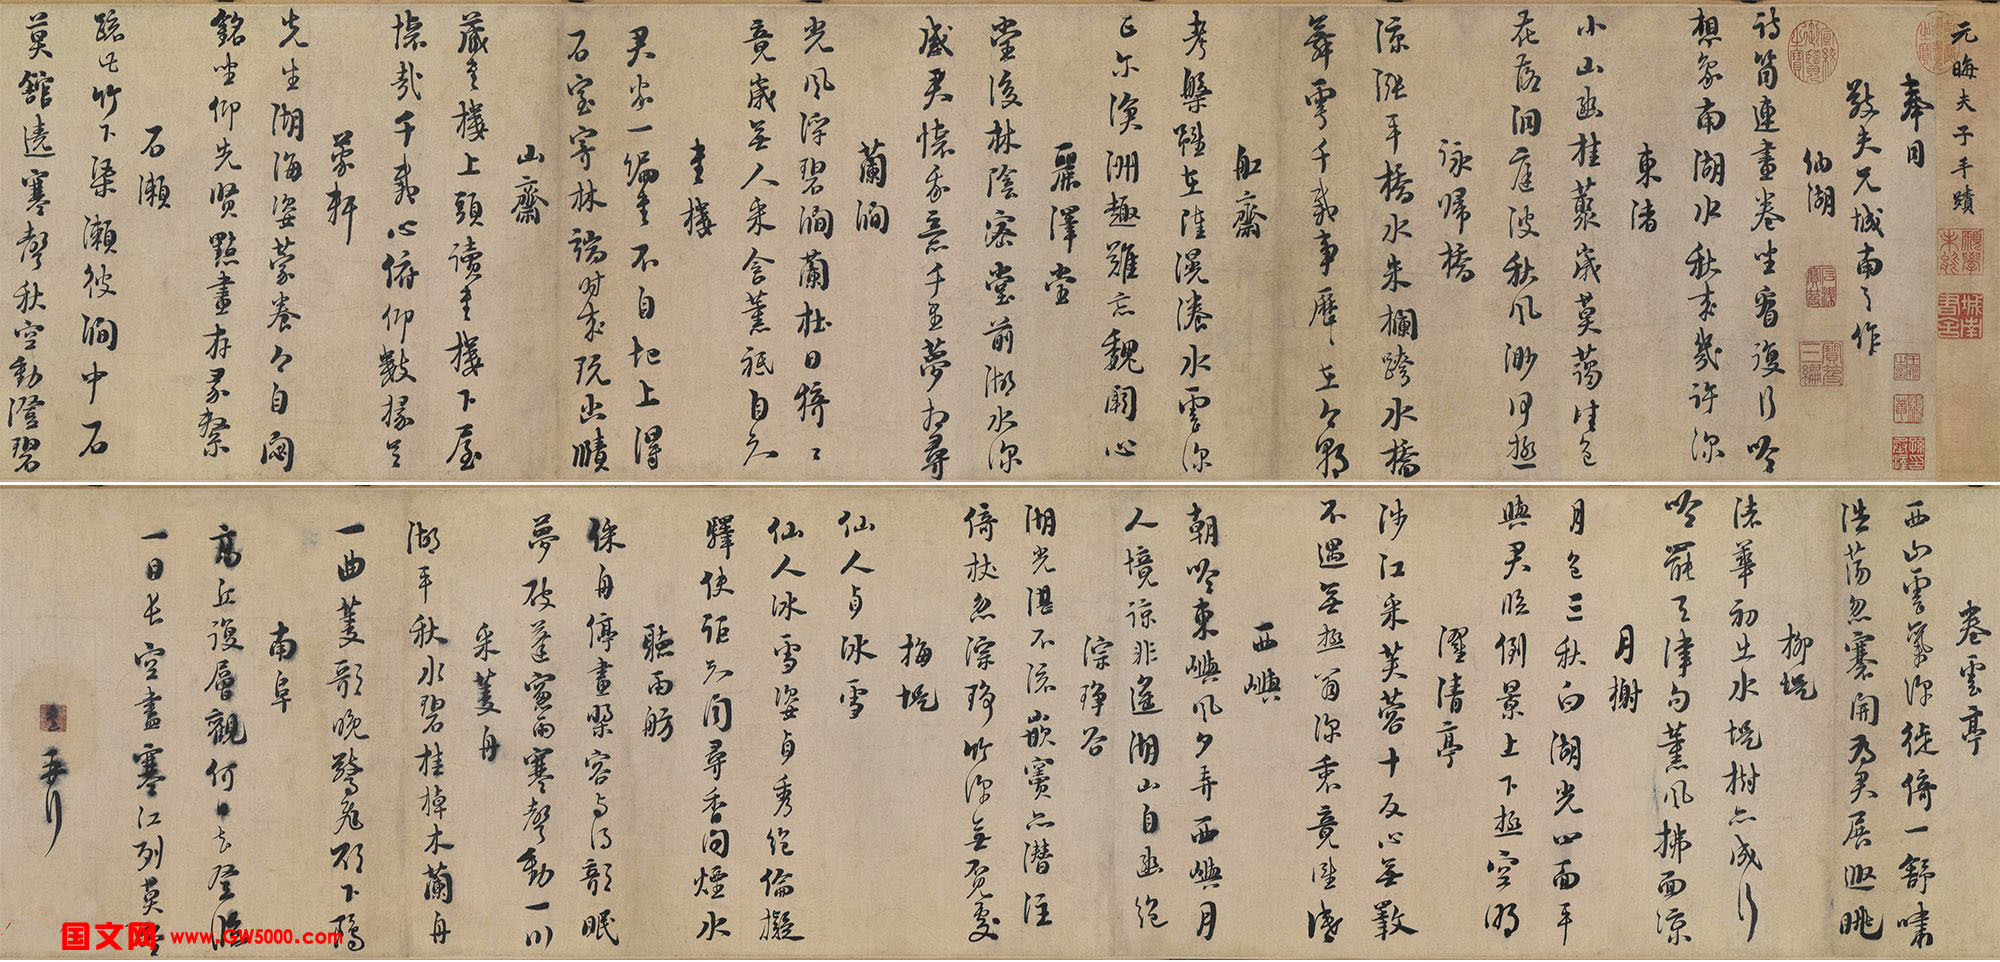 元晦夫子手蹟
奉同
敬夫兄城南之作
納湖
詩筒連畫卷坐看復行吟
想象南湖水秋來幾許深
東渚
小山幽桂叢歲莫藹佳色
花落洞庭波秋風渺何極
詠歸橋
綠漲平橋水朱欄跨水橋
舞雩千載事歷歷在今朝
船齋
考槃雖在陸滉瀁水雲深
正爾滄洲趣難忘魏闕心
麗澤堂
堂後林陰密堂前湖水深
感君懷我意千里夢相尋
蘭澗
光風浮碧澗蘭杜日猗猗
竟歲無人采含薰祗自知
書樓
君家一編書不自圯上得
石室寄林端時來玩幽賾
山齋
藏書樓上頭讀書樓下屋
懷哉千載心俯仰數椽足
蒙軒
先生湖海姿蒙養今自閟
銘坐仰先賢點畫存彖繫
石瀨
疏此竹下渠瀨彼澗中石
莫館遶寒聲秋空動澄碧
卷雲亭
西山雲氣深徙倚一舒嘯
浩蕩忽褰開為君展遐眺
柳堤
渚華初出水堤樹亦成行
吟罷天津句薰風拂面涼
月榭
月色三秋白湖光四面平
與君臨倒景上下極空明
濯清亭
涉江采芙蓉十反心無斁
不遇無極翁深衷竟誰識
西嶼
朝吟東嶼風夕弄西嶼月
人境諒非遙湖山自幽絕
淙琤谷
湖光湛不流嵌竇亦潛注
倚杖忽淙琤竹深無覓處
梅堤
仙人貞冰雪
仙人冰雪姿貞秀絕倫擬
驛使詎知聞尋香問煙水
聽雨舫
綵舟停畫槳容與得敧眠
夢破蓬窗雨寒聲動一川
采菱舟
湖平秋水碧桂棹木蘭舟
一曲菱歌晚驚飛欲下鷗
南阜
高丘復層觀何日去登臨
一目長空盡寒江列莫岑
熹再拜
国文网 www.GW5000.com